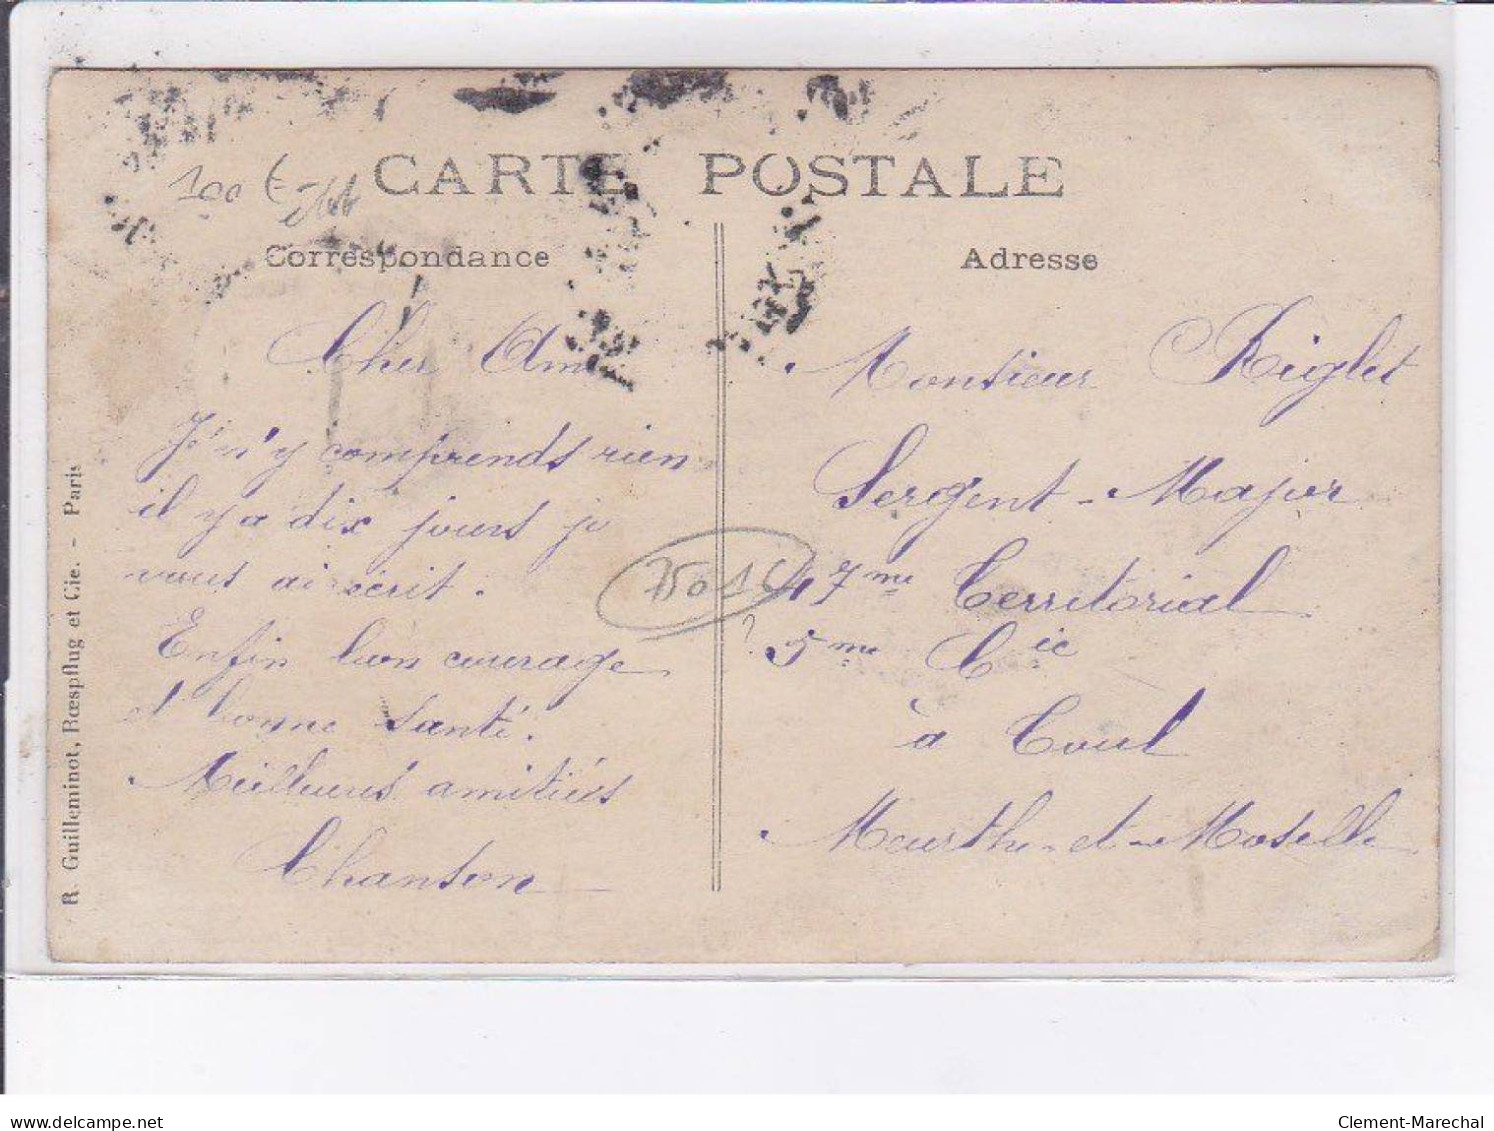 CARTE POSTALE
100 €
Correspondance
Adresse
Cher Ami
Je n'y comprends rien
il y a dix jours je
vous ai écrit.
Enfin bon courage
et bonne santé.
Meilleures amitiés
Chanson
Monsieur Riglet
Sergent-Major
47me Territorial
? 5me Cie
à Toul
Meurthe-et-Moselle
R. Guilleminot, Rœspflug et Cie. - Paris
delcampe.net
Clement-Marechal